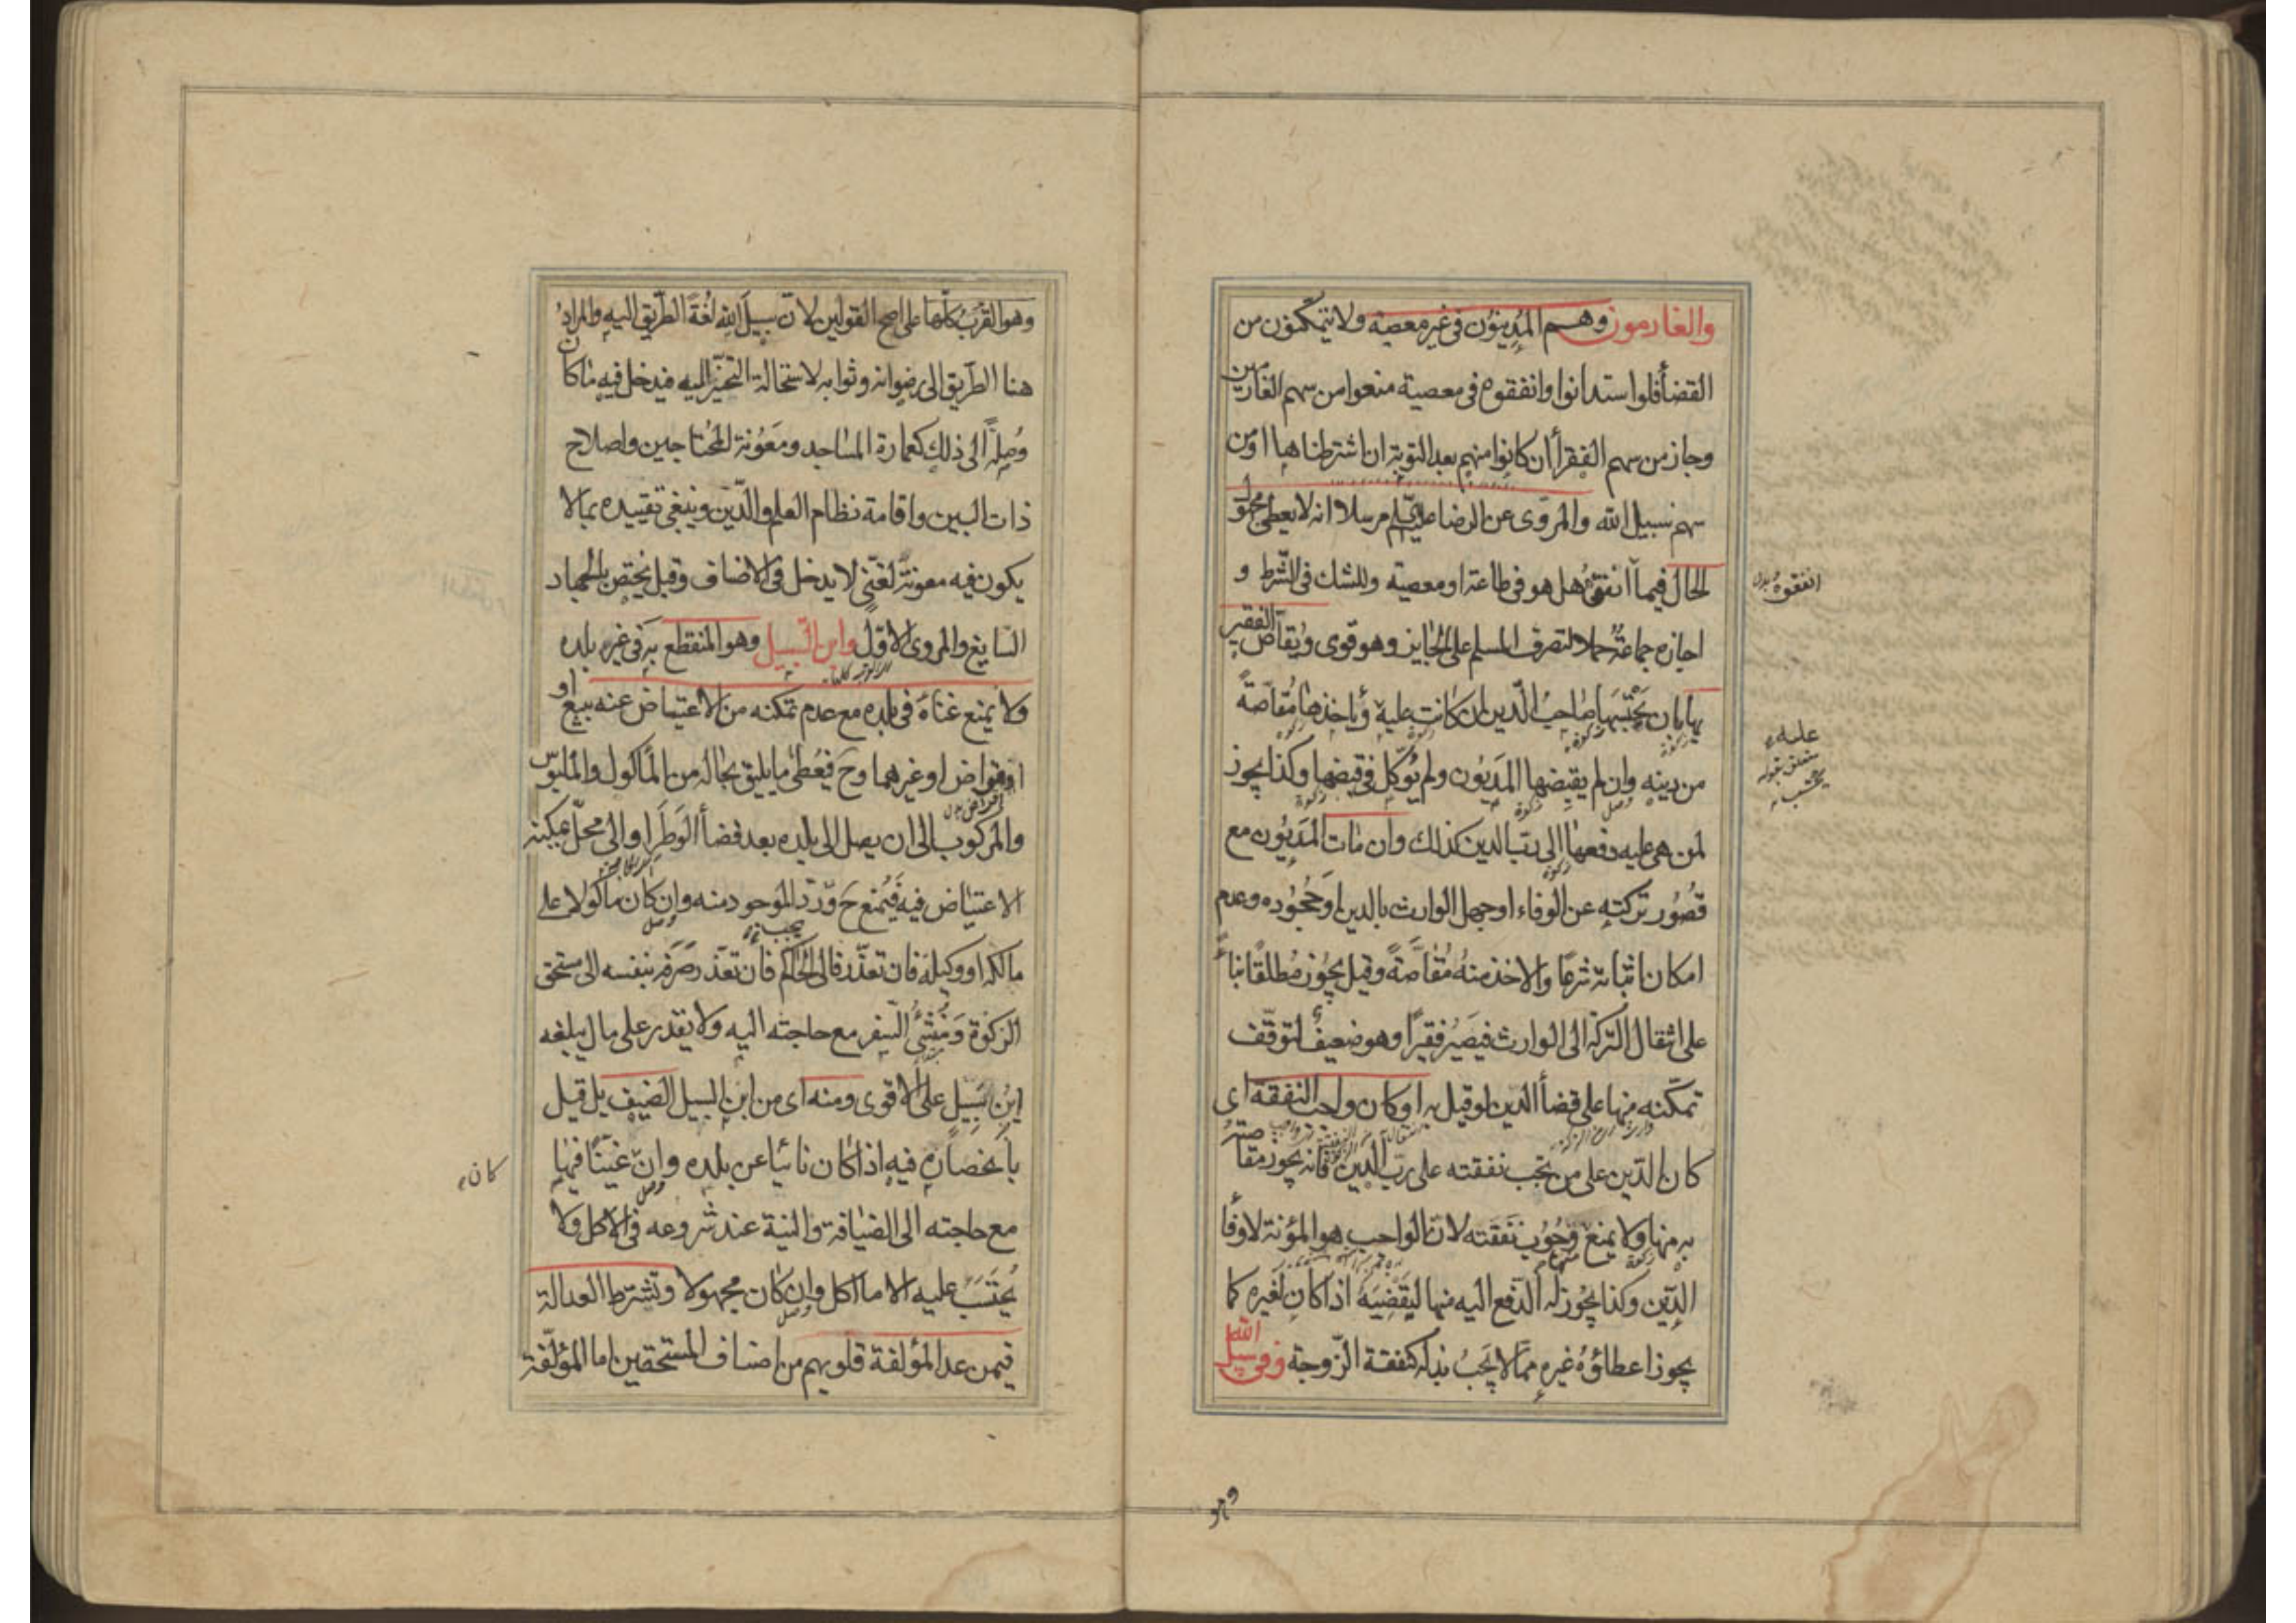 والغارمون وهم المدينون فى غير معصية ولا يتمكنون من
القضأ فلو استدانوا وانفقوه فى معصية منعوا من سهم الغارمين
وجاز من سهم الفقرأ ان كانوا منهم بعد التوبة ان اشترطناها او من
سهم سبيل الله والمروى عن الرضا عليه السلم مرسلا انه لا يعطى مجهول
الحال فيما انفق هل هو فى طاعة او معصية وللشك فى الشرط و
اجازه جماعة حملا لتصرف المسلم على الجايز وهو قوى ويقاص الفقير
بها بان يحتسبها صاحب الدين ان كانت عليه وياخذها مقاصة
من دينه وان لم يقبضها المديون ولم يوكل فى قبضها وكذا يجوز
لمن هى عليه دفعها الى رب الدين كذلك وان مات المديون مع
قصور تركته عن الوفاء او جهل الوارث بالدين او جحوده وعدم
امكان اثباته شرعا والاخذ منه مقاصة وقيل يجوز مطلقا بناءً
على انتقال التركة الى الوارث فيصير فقيرا وهو ضعيف لتوقف
تمكنه منها على قضأ الدين لو قيل به او كان واجب النفقة اى
كان الدين على من تجب نفقته على رب الدين فانه يجوز مقاصته
به منها ولا يمنع وجوب نفقته لان الواجب هو المؤنة لا وفا
الدين وكذا يجوز له الدفع اليه منها ليقضيه اذا كان لغيره كما
يجوز اعطاؤه غيره مما لا يجب بذله كنفقة الزوجة وفى سبيل الله
انفقوه بدل
عليه
متعلق بقوله
يحتسب
وهو
وهو القرب كلها على اصح القولين لان سبيل الله لغة الطريق اليه والمراد
هنا الطريق الى رضوانه وثوابه لاستحالة التحيز اليه فيدخل فيه ما كان
وصلة الى ذلك كعمارة المساجد ومعونة المحتاجين واصلاح
ذات البين واقامة نظام العلم والدين وينبغى تقييده بما لا
يكون فيه معونة لغنى لا يدخل فى الاصناف وقيل يختص بالجهاد
السايغ والمروى الاول وابن السبيل وهو المنقطع به فى غير بلده
ولا يمنع غناه فى بلده مع عدم تمكنه من الاعتياض عنه ببيع او
اقتراض او غيرهما وح فيعطى ما يليق بحاله من المأكول والملبوس
والمركوب الى ان يصل الى بلده بعد قضأ الوطر او الى محل يمكنه
الاعتياض فيه فيمنع ح ورد الموجود منه وان كان ماكولا على
مالكه او وكيله فان تعذر فالى الحاكم فان تعذر صرفه بنفسه الى مستحق
الزكوة ومنشئ السفر مع حاجته اليه ولا يقدر على مال يبلغه
ابن سبيل على الاقوى ومنه اى من ابن السبيل الضيف بل قيل
بانحصاره فيه اذا كان نائيا عن بلده وان غنيا فيها
مع حاجته الى الضيافة والنية عند شروعه فى الاكل ولا
يحتسب عليه الا ما اكل وان كان مجهولا وتشترط العدالة
فيمن عدا المؤلفة قلوبهم من اصناف المستحقين اما المؤلفة
كان